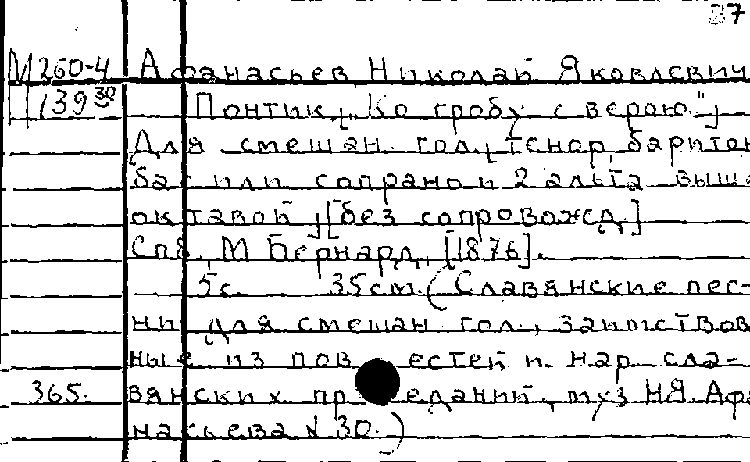 37
М 260-4 Афанасьев, Николай Яковлевич
139 30 Понтик [„Ко гробу с верою"]
Для смешан. гол. [тенор, баритон
бас или сопрано и 2 альта выше
октавой] [без сопровожд.]
Спб., М Бернард, [1876].
5с. 35см. (Славянские пес-
ни для смешан гол., заимствов
ные из повестей и нар. сла-
365. вянских преданий, муз Н.Я. Афа
насьева № 30.)